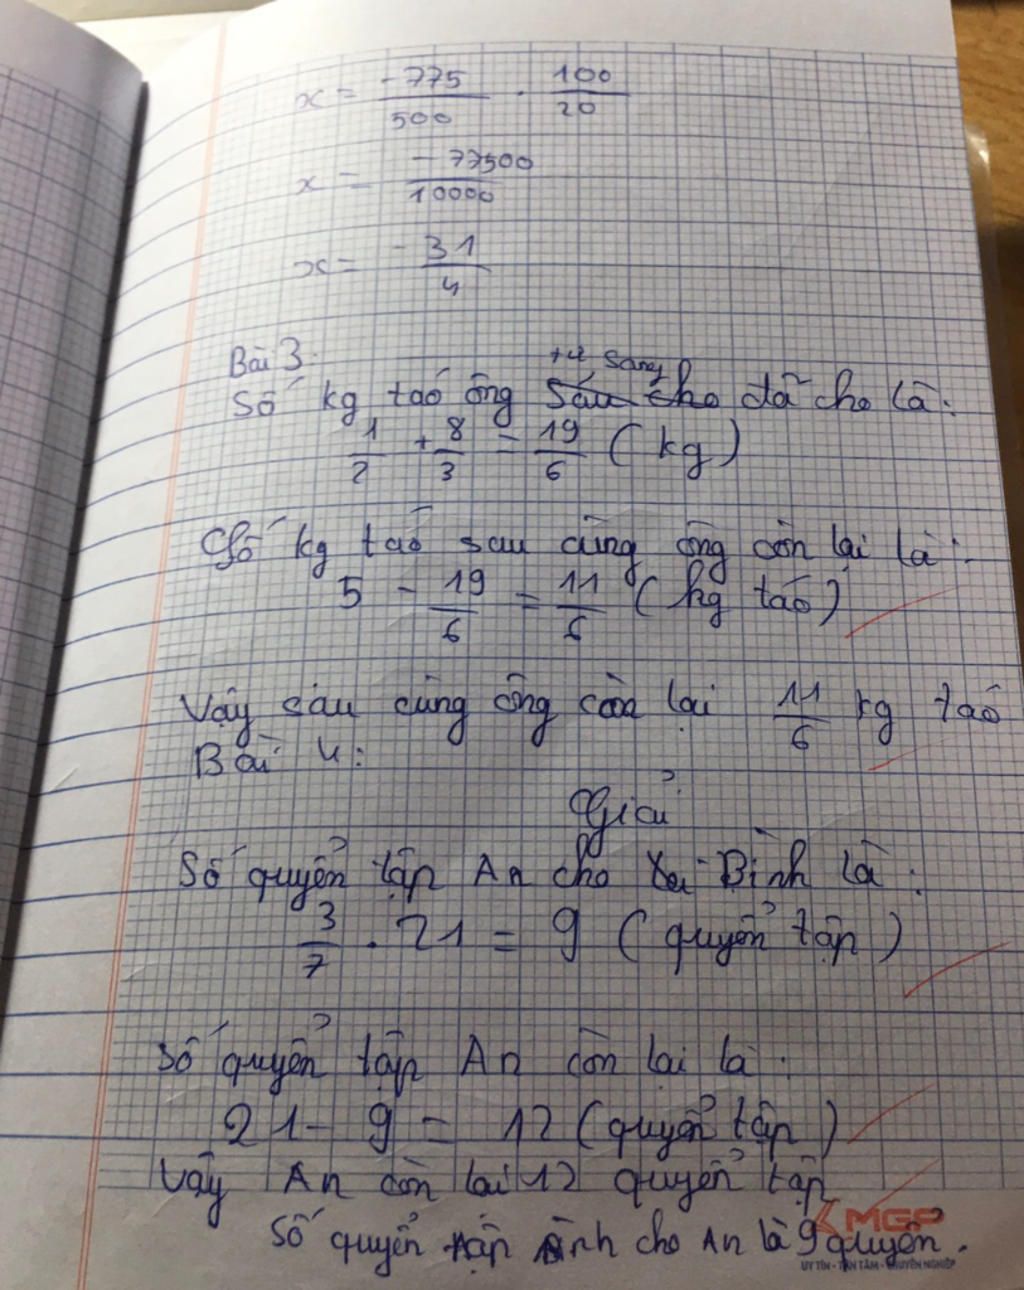 x = -775/500 . 100/20
x = -77500/10000
x = -31/4
Bài 3.
từ sang
Số kg táo ông sáu cho đã cho là:
1/2 + 8/3 = 19/6 (kg)
Số kg táo sau cùng ông còn lại là:
5 - 19/6 = 11/6 (kg táo)
Vậy sau cùng ông còn lại 11/6 kg táo
Bài 4:
Giải
Số quyển tập An cho Bình là:
3/7 . 21 = 9 (quyển tập)
Số quyển tập An còn lại là:
21 - 9 = 12 (quyển tập)
Vậy An còn lại 12 quyển tập
Số quyển tập Bình cho An là 9 quyển.
MGP
UY TÍN - TẬN TÂM - CHUYÊN NGHIỆP